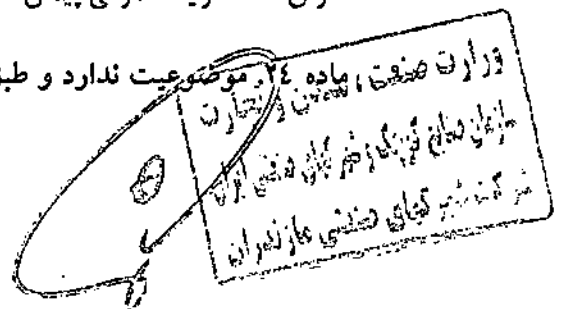 ماده ۲۴. موضوعیت ندارد و طبق
وزارت صنعت، معدن و تجارت
سازمان صنایع کوچک و شهرکهای صنعتی ایران
شرکت شهرکهای صنعتی مازندران